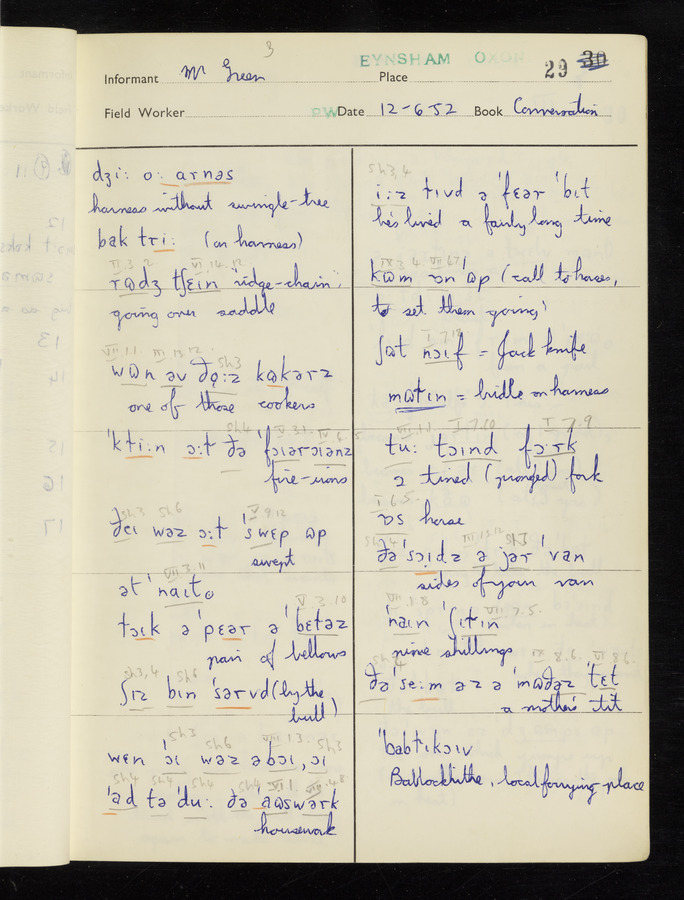 3
EYNSHAM OXON.
29 30
Informant Mr Green
Place
Field Worker PW
Date 12-6-52
Book Conversation
dʒiː oː arnəs
harness without swingle-tree
bak triː (on harness)
VI.14.12
rɷdʒ tʃɛin 'ridge-chain',
going over saddle
VII.1.1 III.13.12 Sh3
wɷn əv ðoːz kɷkərz
one of those cookers
'ktiːn ɔːt ðə 'fɔiərɔiənz
fire-irons
Sh3 Sh6 V.9.12
ðɛi wəz ɔːt 'swɛp ɷp
swept
VII.3.11
ət 'nait
V.2.10
tɔik ə 'pɛər ə 'bɛtəz
pair of bellows
Sh3,4 Sh6
ʃiz bin 'sərvd (by the
bull)
Sh3 Sh6 VIII.1.3 Sh3
wɛn ɔi wəz əbɔi, ɔi
Sh4 Sh4 Sh4 Sh4
'ad tə 'duː ðə 'aɷswərk
housework
Sh3,4
iːz tivd ə 'fɛər 'bit
he's lived a fairly long time
kɷm ɒn 'ɷp (call to horses,
to set them going)
I.7.18
ʃɷt nɔif = Jack knife
mɷtin = bridle on harness
VII.1.1 I.7.10 I.7.9
tuː tɔind fɔrk
2 tined (pronged) fork
I.6.5
ɒs horse
Sh4
ðə 'sɔidz ə jər 'van
sides of your van
VII.1.8 VII.7.5.
'nain 'ʃitin
nine shillings
Sh4
ðə 'seːm əz ə 'mɷðəz 'tɛt
a mother's tit
'babtikɔiv
Bablockhithe, local ferrying-place